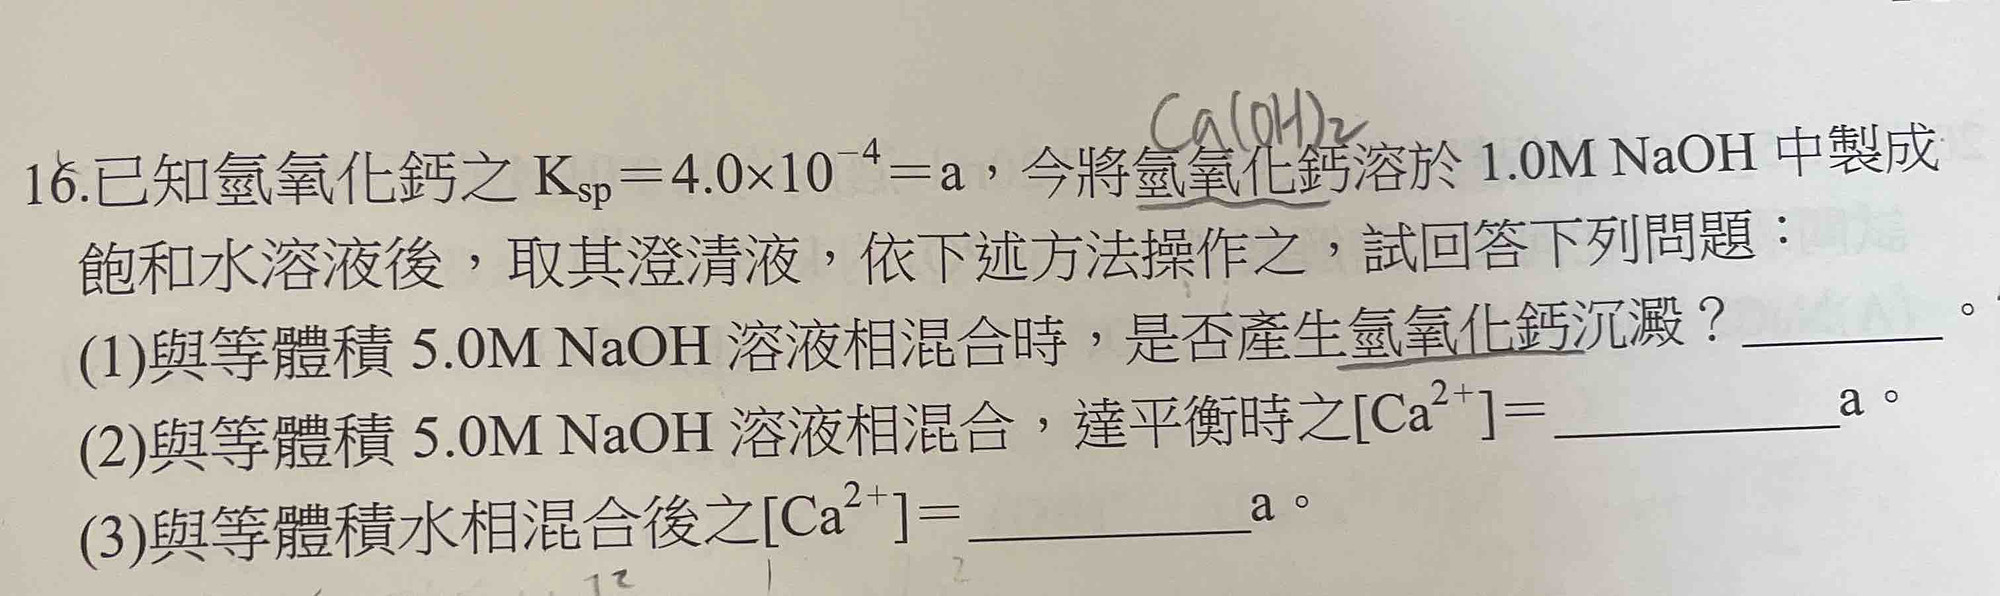 Ca(OH)₂
16.已知氫氧化鈣之 Ksp＝4.0×10⁻⁴＝a，今將氫氧化鈣溶於 1.0M NaOH 中製成
飽和水溶液後，取其澄清液，依下述方法操作之，試回答下列問題：
(1)與等體積 5.0M NaOH 溶液相混合時，是否產生氫氧化鈣沉澱？________。
(2)與等體積 5.0M NaOH 溶液相混合，達平衡時之[Ca²⁺]＝________a。
(3)與等體積水相混合後之[Ca²⁺]＝________a。